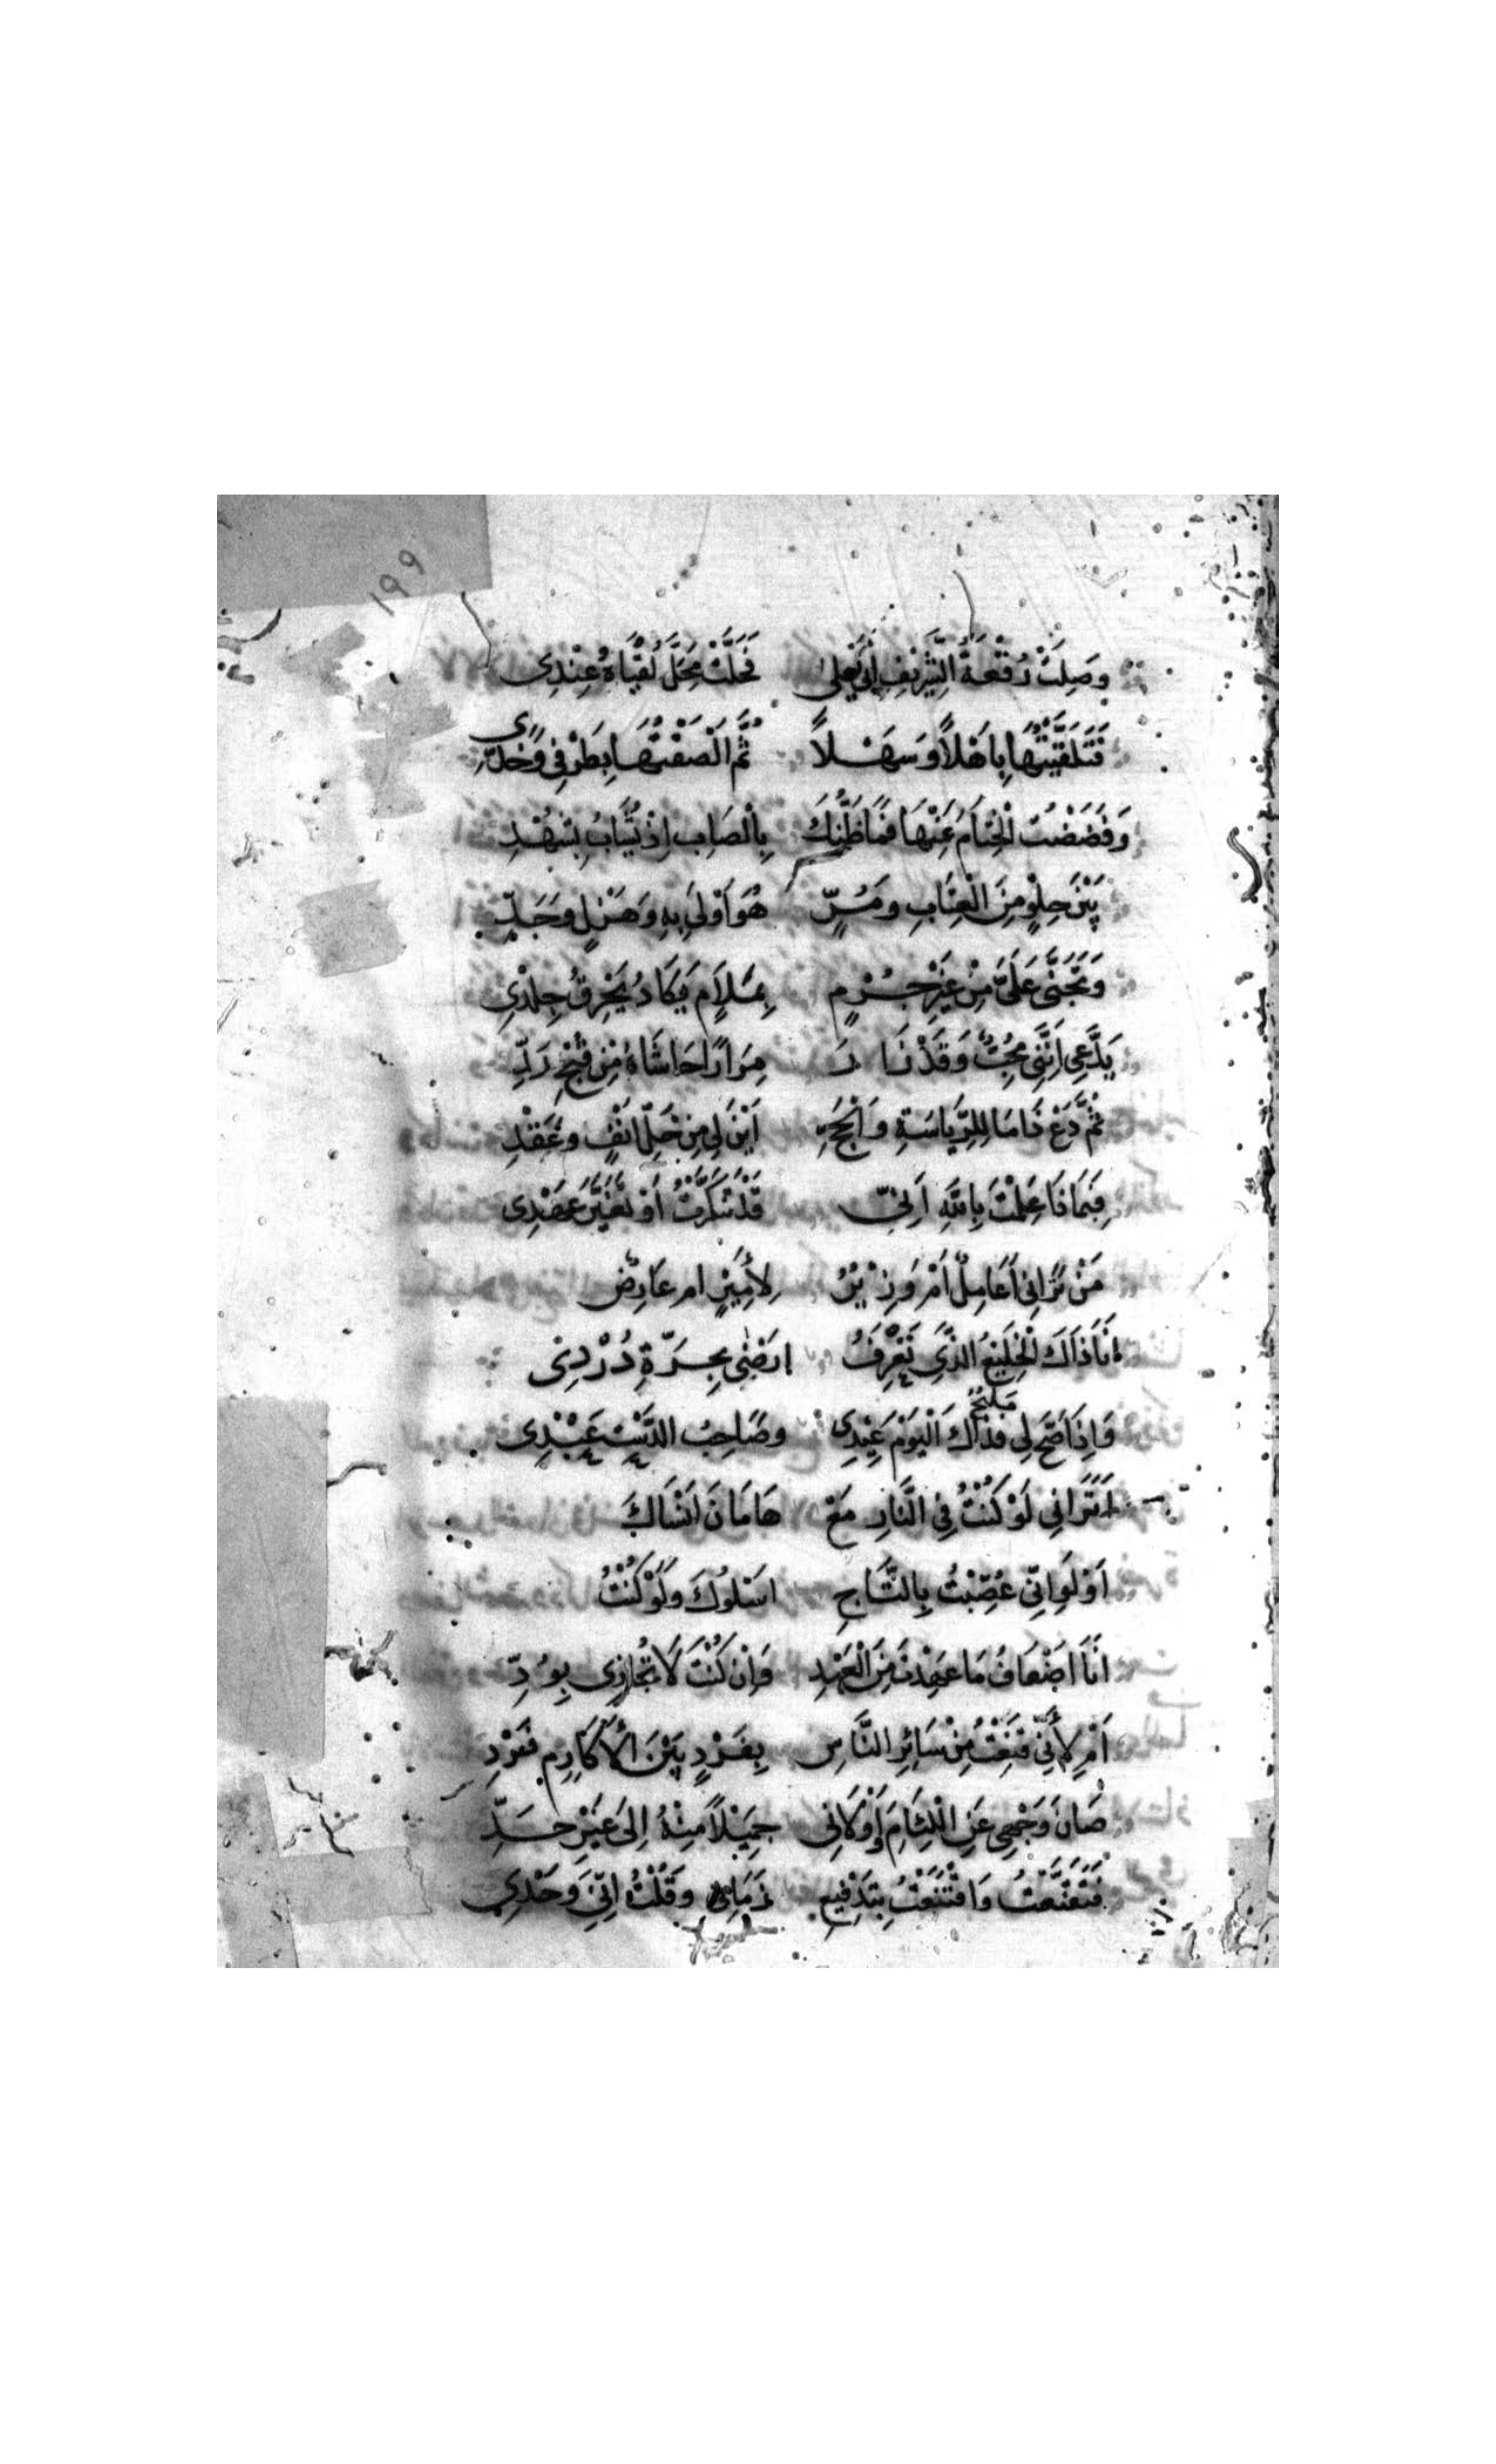 ١٩٩
وَصِلَتْ رُقْعَةُ الشَّرِيْفِ اَبِيْ يَعْلى فَحَلَّتْ مَحَلَّ لُقْيَاهُ عِنْدِى
فَتَلَقَّيْتُهَا بِاَهْلاً وَسَهْلاً ثُمَّ اَلْصَقْتُهَا بِطَرْفِى وَخَدِّى
وَفَضَضْتُ الْخِتَامَ عَنْهَا فَمَا ظَنُّكَ بِالْصَابِ اِذْ يُشَابُ بِشَهْدِ
بَيْنَ حِلْوٍ مِنَ الْعِتَابِ وَمُرٍّ هُوَ اَوْلَى بِهِ وَهَزْلٍ وَجَدٍّ
وَتَجَنَّى عَلَىَّ مِنْ غَيْرِ جُرْمٍ بِمَلَامٍ يَكَادُ يَخْرِقُ جِلْدِى
يَدَّعِى اَنَّنِى مَحْجُبٌ وَقَدْ زَا رَ مِرَارًا حَاشَاهُ مِنْ قُبْحِ رَدِّ
ثُمَّ دَعْ ذَا مَا لِلرِّيَاسَةِ وَالْحَجِّ اَيْنَ لِى مِنْ حَلِّ انْفٍ وَعَقْدِ
فَبِمَاذَا عَلِمْتَ بِاللهِ اَنِّى قَدْ تَنَكَّرْتُ اَوْ تَغَيَّرَ عَهْدِى
مَنْ تَرَانِى اَعَامِلٌ اَمْ وَزِيْرٌ لِأَمِيْرٍ ام عَارِضٌ
اِنَا ذَاكَ الْخَلِيْعُ الَّذِى تَعْرِفُ ارْضٰى بِجَرَّةِ دُرْدِى
وَاِذَا صَحَّ لِى مَلِيْحٌ فَذَاكَ الْيَوْمَ عِيْدِى وَصَاحِبُ الدَّسْتِ عَبْدِى
اَتَرَانِى لَوْ كُنْتُ فِى النَّارِ مَعْ هَامَانَ اَنْسَاكَ
اَوْ لَوْ اَنِّى عُصِّبْتُ بِالتَّاجِ اسْلُوكَ وَلَوْ كُنْتُ
انَا اضْعَافُ مَا عَهِدْتَ مِنَ الْعَهْدِ وَاِنْ كُنْتَ لَا تُجَازِى بِوُدِّ
اَمْ لِأَنِّى قَنِعْتُ مِنْ سَائِرِ النَّاسِ بِفَرْدٍ بَيْنَ الْأَكَارِمِ فَرْدِ
صَانَ وَجْهِى عَنِ اللِّئَامِ وَأَوْلَانِى جَمِيْلاً مِنْهُ اِلَى غَيْرِ حَدِّ
فَتَعَفَّفْتُ وَاقْتَنَعْتُ بِتَدْفِيعِ زَمَانِى وَقُلْتُ اِنِّى وَحْدِى